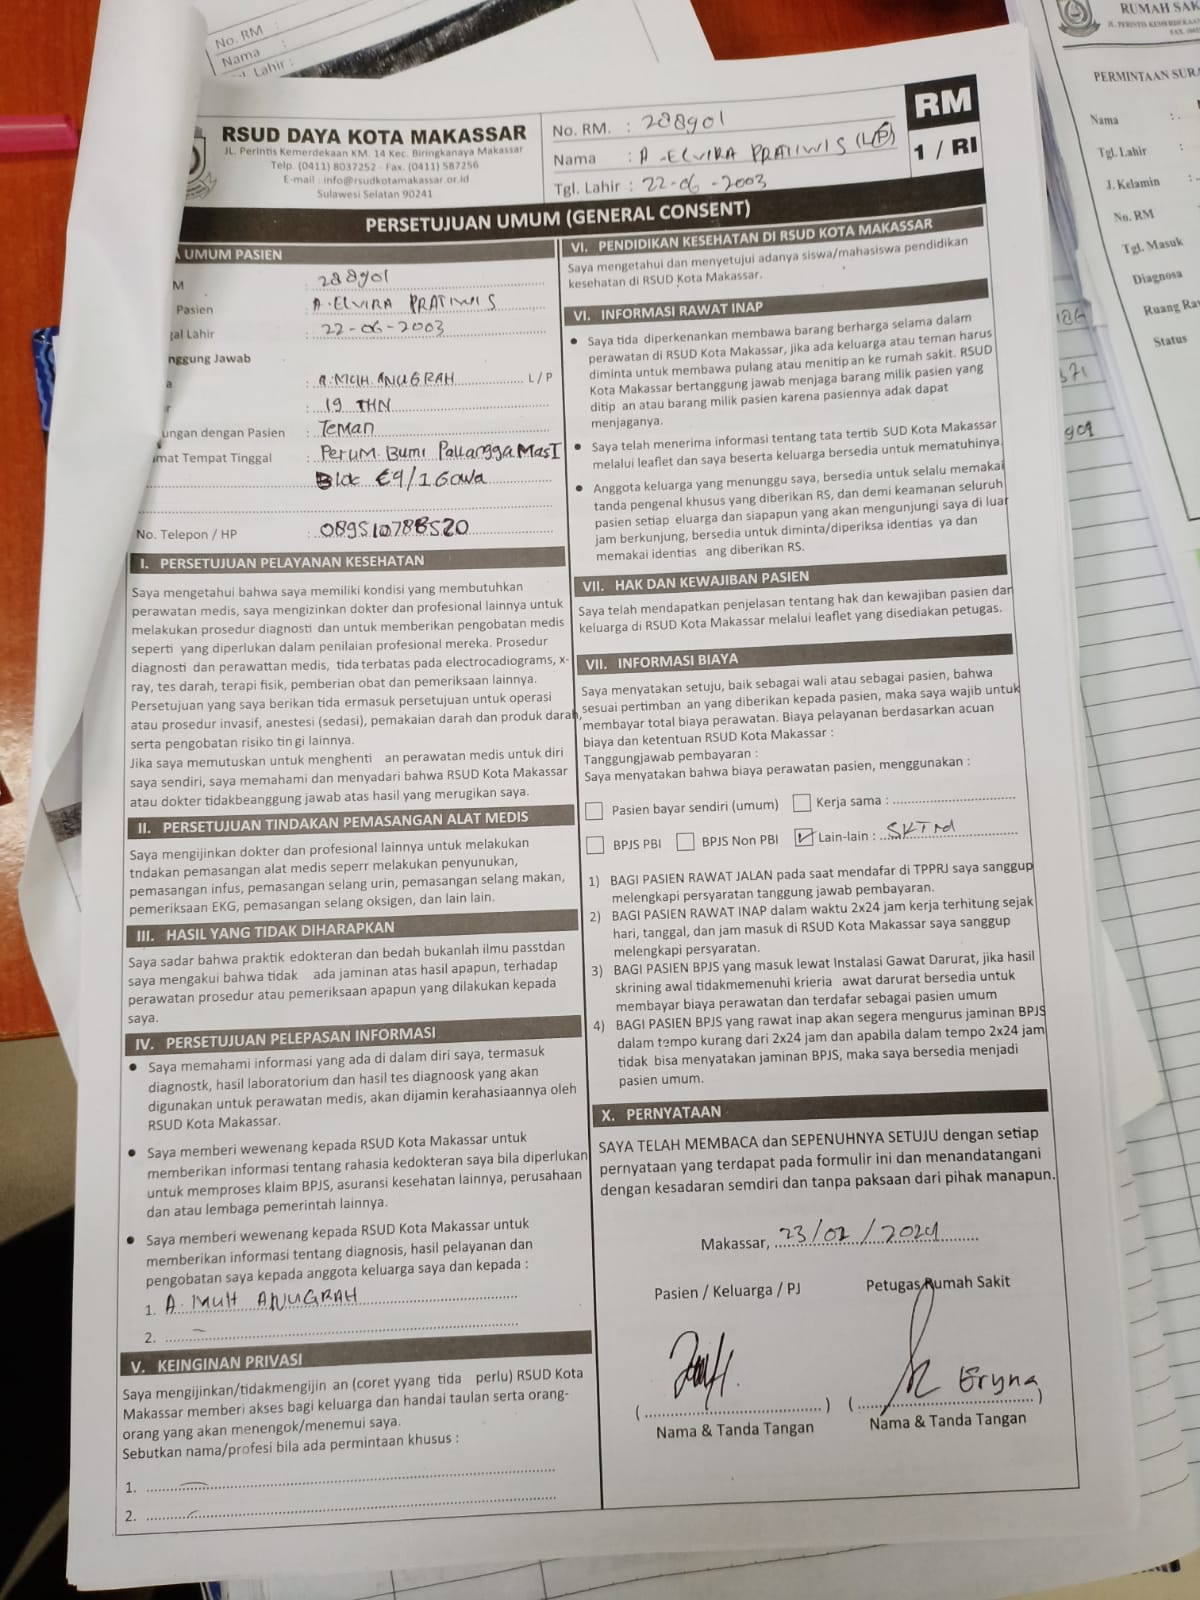 No. RM :
Nama :
Lahir :
RSUD DAYA KOTA MAKASSAR
JL. Perintis Kemerdekaan KM. 14 Kec. Biringkanaya Makassar
Telp. (0411) 8037252 - Fax. (0411) 587256
E-mail : info@rsudkotamakassar.or.id
Sulawesi Selatan 90241
No. RM. : 288901
Nama : A. ELVIRA PRATIWIS (L/P)
Tgl. Lahir : 22-06-2003
RM
1 / RI
PERSETUJUAN UMUM (GENERAL CONSENT)
UMUM PASIEN
M : 288901
Pasien : A. ELVIRA PRATIWIS
gal Lahir : 22-06-2003
nggung Jawab
a : A. MUH. ANUGRAH L / P
r : 19 THN
ungan dengan Pasien : Teman
mat Tempat Tinggal : Perum. Bumi Pallangga Mas I
Blok E9/1 Gowa
No. Telepon / HP :
I. PERSETUJUAN PELAYANAN KESEHATAN
Saya mengetahui bahwa saya memiliki kondisi yang membutuhkan
perawatan medis, saya mengizinkan dokter dan profesional lainnya untuk
melakukan prosedur diagnosti dan untuk memberikan pengobatan medis
seperti yang diperlukan dalam penilaian profesional mereka. Prosedur
diagnosti dan perawattan medis, tida terbatas pada electrocadiograms, x-
ray, tes darah, terapi fisik, pemberian obat dan pemeriksaan lainnya.
Persetujuan yang saya berikan tida ermasuk persetujuan untuk operasi
atau prosedur invasif, anestesi (sedasi), pemakaian darah dan produk darah,
serta pengobatan risiko tin gi lainnya.
Jika saya memutuskan untuk menghenti an perawatan medis untuk diri
saya sendiri, saya memahami dan menyadari bahwa RSUD Kota Makassar
atau dokter tidakbeanggung jawab atas hasil yang merugikan saya.
II. PERSETUJUAN TINDAKAN PEMASANGAN ALAT MEDIS
Saya mengijinkan dokter dan profesional lainnya untuk melakukan
tndakan pemasangan alat medis seperr melakukan penyunukan,
pemasangan infus, pemasangan selang urin, pemasangan selang makan,
pemeriksaan EKG, pemasangan selang oksigen, dan lain lain.
III. HASIL YANG TIDAK DIHARAPKAN
Saya sadar bahwa praktik edokteran dan bedah bukanlah ilmu passtdan
saya mengakui bahwa tidak ada jaminan atas hasil apapun, terhadap
perawatan prosedur atau pemeriksaan apapun yang dilakukan kepada
saya.
IV. PERSETUJUAN PELEPASAN INFORMASI
• Saya memahami informasi yang ada di dalam diri saya, termasuk
diagnostk, hasil laboratorium dan hasil tes diagnoosk yang akan
digunakan untuk perawatan medis, akan dijamin kerahasiaannya oleh
RSUD Kota Makassar.
• Saya memberi wewenang kepada RSUD Kota Makassar untuk
memberikan informasi tentang rahasia kedokteran saya bila diperlukan
untuk memproses klaim BPJS, asuransi kesehatan lainnya, perusahaan
dan atau lembaga pemerintah lainnya.
• Saya memberi wewenang kepada RSUD Kota Makassar untuk
memberikan informasi tentang diagnosis, hasil pelayanan dan
pengobatan saya kepada anggota keluarga saya dan kepada :
1. A. MUH ANUGRAH
2. –
V. KEINGINAN PRIVASI
Saya mengijinkan/tidakmengijin an (coret yyang tida perlu) RSUD Kota
Makassar memberi akses bagi keluarga dan handai taulan serta orang-
orang yang akan menengok/menemui saya.
Sebutkan nama/profesi bila ada permintaan khusus :
1. –
2. –
VI. PENDIDIKAN KESEHATAN DI RSUD KOTA MAKASSAR
Saya mengetahui dan menyetujui adanya siswa/mahasiswa pendidikan
kesehatan di RSUD Kota Makassar.
VI. INFORMASI RAWAT INAP
• Saya tida diperkenankan membawa barang berharga selama dalam
perawatan di RSUD Kota Makassar, jika ada keluarga atau teman harus
diminta untuk membawa pulang atau menitip an ke rumah sakit. RSUD
Kota Makassar bertanggung jawab menjaga barang milik pasien yang
ditip an atau barang milik pasien karena pasiennya adak dapat
menjaganya.
• Saya telah menerima informasi tentang tata tertib SUD Kota Makassar
melalui leaflet dan saya beserta keluarga bersedia untuk mematuhinya
• Anggota keluarga yang menunggu saya, bersedia untuk selalu memakai
tanda pengenal khusus yang diberikan RS, dan demi keamanan seluruh
pasien setiap eluarga dan siapapun yang akan mengunjungi saya di luar
jam berkunjung, bersedia untuk diminta/diperiksa identias ya dan
memakai identias ang diberikan RS.
VII. HAK DAN KEWAJIBAN PASIEN
Saya telah mendapatkan penjelasan tentang hak dan kewajiban pasien dan
keluarga di RSUD Kota Makassar melalui leaflet yang disediakan petugas.
VII. INFORMASI BIAYA
Saya menyatakan setuju, baik sebagai wali atau sebagai pasien, bahwa
sesuai pertimban an yang diberikan kepada pasien, maka saya wajib untuk
membayar total biaya perawatan. Biaya pelayanan berdasarkan acuan
biaya dan ketentuan RSUD Kota Makassar :
Tanggungjawab pembayaran :
Saya menyatakan bahwa biaya perawatan pasien, menggunakan :
Pasien bayar sendiri (umum) Kerja sama :
BPJS PBI BPJS Non PBI ✓ Lain-lain : SKTM
1) BAGI PASIEN RAWAT JALAN pada saat mendafar di TPPRJ saya sanggup
melengkapi persyaratan tanggung jawab pembayaran.
2) BAGI PASIEN RAWAT INAP dalam waktu 2x24 jam kerja terhitung sejak
hari, tanggal, dan jam masuk di RSUD Kota Makassar saya sanggup
melengkapi persyaratan.
3) BAGI PASIEN BPJS yang masuk lewat Instalasi Gawat Darurat, jika hasil
skrining awal tidakmemenuhi krieria awat darurat bersedia untuk
membayar biaya perawatan dan terdafar sebagai pasien umum
4) BAGI PASIEN BPJS yang rawat inap akan segera mengurus jaminan BPJS
dalam tempo kurang dari 2x24 jam dan apabila dalam tempo 2x24 jam
tidak bisa menyatakan jaminan BPJS, maka saya bersedia menjadi
pasien umum.
X. PERNYATAAN
SAYA TELAH MEMBACA dan SEPENUHNYA SETUJU dengan setiap
pernyataan yang terdapat pada formulir ini dan menandatangani
dengan kesadaran semdiri dan tanpa paksaan dari pihak manapun.
Makassar, 23/02/2024
Pasien / Keluarga / PJ Petugas Rumah Sakit
Eryna
( ) ( )
Nama & Tanda Tangan Nama & Tanda Tangan
RUMAH SAK
JL. PERINTIS KEMERDEKAAN
PERMINTAAN SURA
Nama :
Tgl. Lahir :
J. Kelamin :
No. RM
Tgl. Masuk
Diagnosa
Ruang Ra
Status